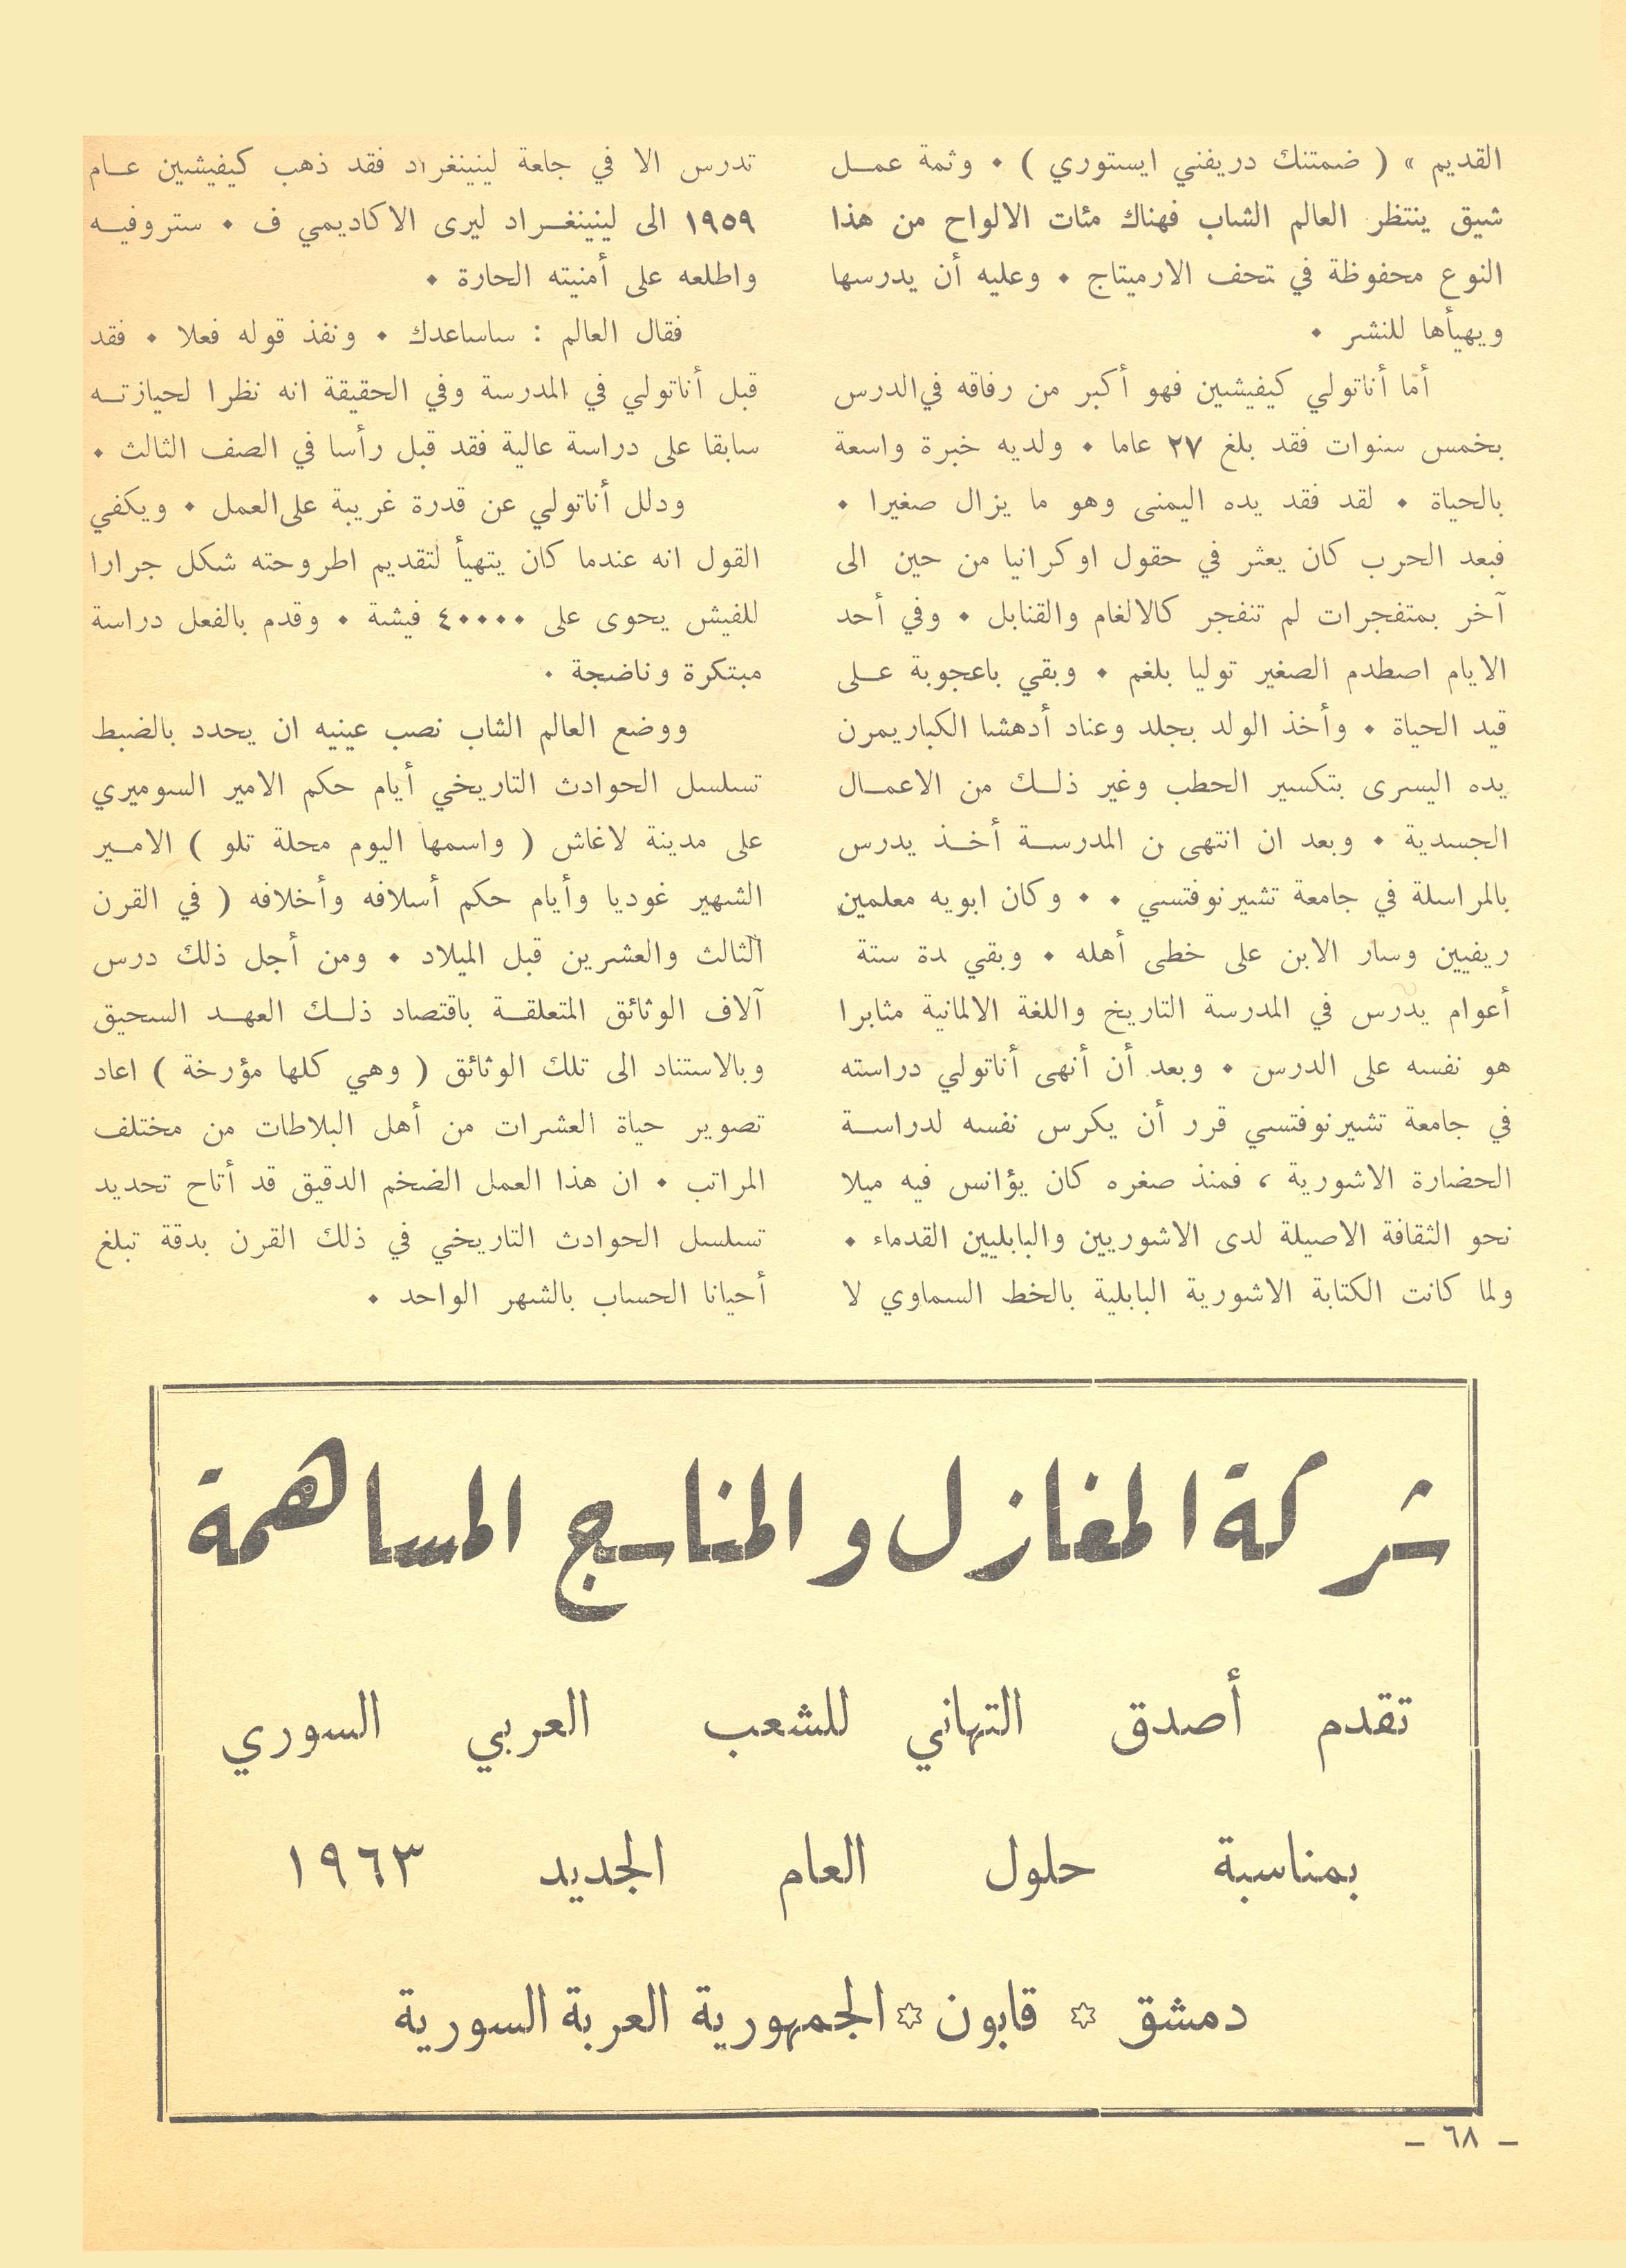 القديم » ( ضمتنك دريفني ايستوري ) ٠ وثمة عمـل
شيق ينتظر العالم الشاب فهناك مئات الالواح من هذا
النوع محفوظة في تحف الارميتاج ٠ وعليه أن يدرسها
ويهيأها للنشر ٠
أمّا أناتولي كيفيشيين فهو أكبر من رفاقه في الدرس
بخمس سنوات فقد بلغ ٢٧ عاما ٠ ولديه خبرة واسعة
بالحياة ٠ لقد فقد يده اليمنى وهو ما يزال صغيرا ٠
فبعد الحرب كان يعثر في حقول اوكرانيا من حين الى
آخر بمتفجرات لم تنفجر كالالغام والقنابل ٠ وفي أحد
الايام اصطدم الصغير توليا بلغم ٠ وبقي باعجوبة عـلى
قيد الحياة ٠ وأخذ الولد بجلد وعناد أدهشا الكباريمرن
يده اليسرى بتكسير الحطب وغير ذلـك من الاعمـال
الجسدية ٠ وبعد ان انتهى ن المدرسـة أخـذ يدرس
بالمراسلة في جامعة تشيرنوفتسي ٠ ٠ وكان ابويه معلمين
ريفيين وسار الابن على خطى أهله ٠ وبقي دة ستة
أعوام يدرس في المدرسة التاريخ واللغة الالمانية مثابرا
هو نفسه على الدرس ٠ وبعد أن أنهى أناتولي دراسته
في جامعة تشيرنوفتسي قرر أن يكرس نفسه لدراسـة
الحضارة الاشورية ، فمنذ صغره كان يؤانس فيه ميلا
نحو الثقافة الاصيلة لدى الاشوريين والبابليين القدماء ٠
ولما كانت الكتابة الاشورية البابلية بالخط السماوي لا
تدرس الا في جاعة لينينغراد فقد ذهب كيفيشيين عـام
١٩٥٩ الى لينينغـراد ليرى الاكاديمي ف ٠ ستروفيـه
واطلعه على أمنيته الحارة ٠
فقال العالم : ساساعدك ٠ ونفذ قوله فعلا ٠ فقد
قبل أناتولي في المدرسة وفي الحقيقة انه نظرا لحيازتـه
سابقا على دراسة عالية فقد قبل رأسا في الصف الثالث ٠
ودلل أناتولي عن قدرة غريبة على العمل ٠ ويكفي
القول انه عندما كان يتهيأ لتقديم اطروحته شكل جرارا
للفيش يحوى على ٤٠٠٠٠ فيشة ٠ وقدم بالفعل دراسة
مبتكرة وناضجة ٠
ووضع العالم الشاب نصب عينيه ان يحدد بالضبط
تسلسل الحوادث التاريخي أيام حكم الامير السوميري
على مدينة لاغاش ( واسمها اليوم محلة تلو ) الامـير
الشهير غوديا وأيام حكم أسلافه وأخلافه ( في القرن
الثالث والعشرين قبل الميلاد ٠ ومن أجل ذلك درس
آلاف الوثائق المتعلقـة باقتصاد ذلـك العهـد السحيق
وبالاستناد الى تلك الوثائق ( وهي كلها مؤرخة ) اعاد
تصوير حياة العشرات من أهل البلاطات من مختلف
المراتب ٠ ان هذا العمل الضخم الدقيق قد أتاح تحديد
تسلسل الحوادث التاريخي في ذلك القرن بدقة تبلغ
أحيانا الحساب بالشهر الواحد ٠
شركة المغازل والمناسج المساهمة
تقدم أصدق التهاني للشعب العربي السوري
بمناسبة حلول العام الجديد ١٩٦٣
دمشق ✡ قابون ✡ الجمهورية العربة السورية
– ٦٨ –